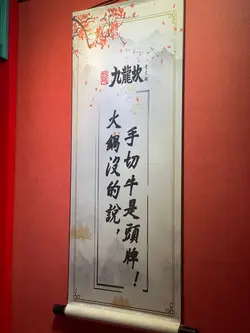 九龍坎
火鍋没的說，
手切牛是頭牌！